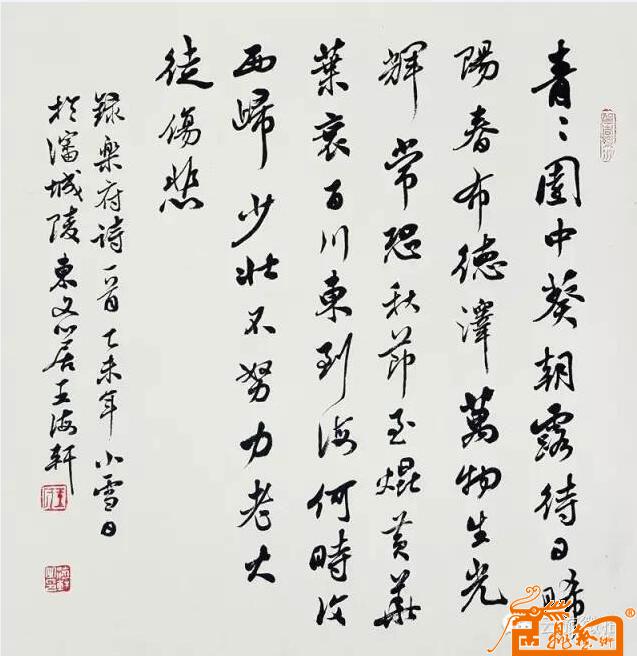 青〻園中葵朝露待日晞
陽春布德澤萬物生光
輝常恐秋節至焜黃華
葉衰百川東到海何時復
西歸少壯不努力老大
徒傷悲
錄樂府詩一首乙未年小雪日
於瀋城陵東文心居王海軒